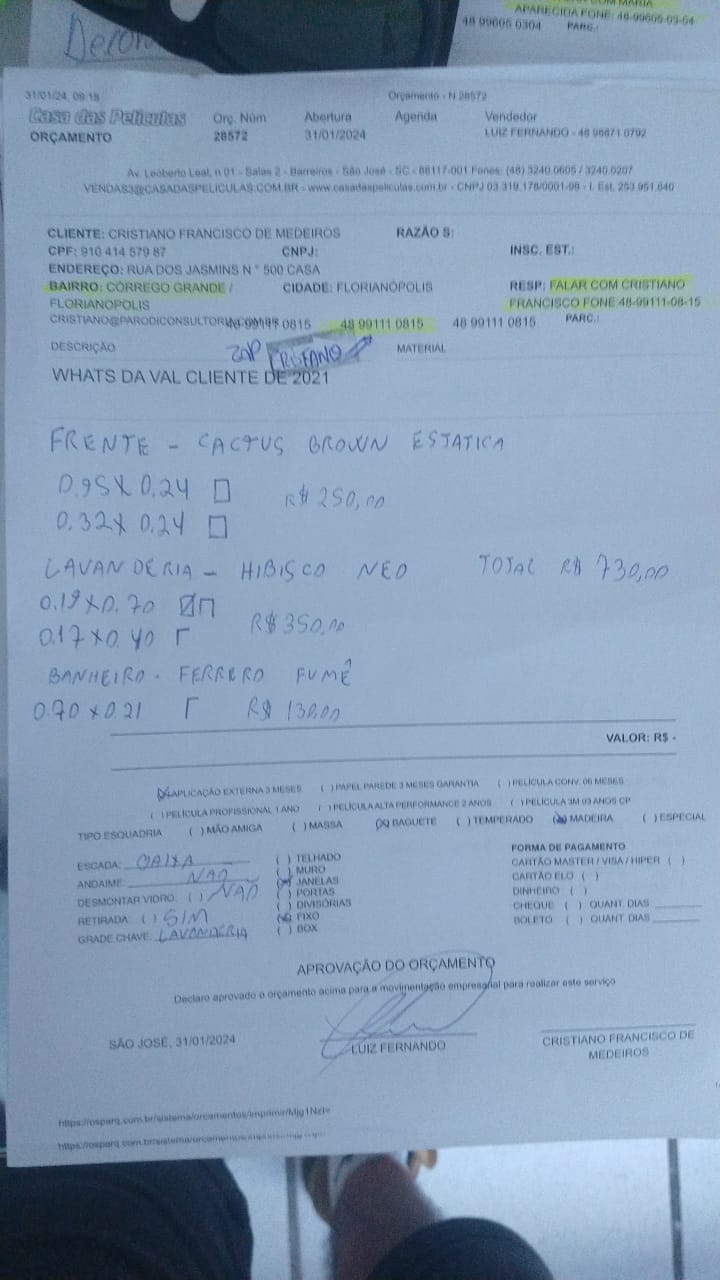 APARECIDA FONE: 48-99606-03-04
48 99606 0304 PARC.:
31/01/24, 09:18 Orçamento - N 28572
Casa das Películas Orç. Núm Abertura Agenda Vendedor
ORÇAMENTO 28572 31/01/2024 LUIZ FERNANDO - 48 98871 0792
Av. Leoberto Leal, n 01 - Salas 2 - Barreiros - São José - SC - 88117-001 Fones: (48) 3240.0605 / 3240.0207
VENDAS3@CASADASPELICULAS.COM.BR - www.casadaspeliculas.com.br - CNPJ 03.319.178/0001-98 - I. Est. 253.951.640
CLIENTE: CRISTIANO FRANCISCO DE MEDEIROS RAZÃO S:
CPF: 910 414 579 87 CNPJ: INSC. EST.:
ENDEREÇO: RUA DOS JASMINS N ° 500 CASA
BAIRRO: CÓRREGO GRANDE / CIDADE: FLORIANÓPOLIS RESP: FALAR COM CRISTIANO
FLORIANOPOLIS FRANCISCO FONE:48-99111-08-15
48 99111 0815 48 99111 0815 PARC.:
DESCRIÇÃO ZAP MATERIAL
WHATS DA VAL CLIENTE DE 2021
FRENTE - CACTUS BROWN ESTATICA
0.95 X 0.24
R$ 250,00
0.32 X 0.24
LAVANDERIA - HIBISCO NEO TOTAL R$ 730,00
0.19 X 0.70
R$ 350,00
0.17 X 0.40
BANHEIRO - FERRERO FUMÊ
0.70 X 0.21 R$ 130,00
VALOR: R$ -
(X) APLICAÇÃO EXTERNA 3 MESES ( ) PAPEL PAREDE 3 MESES GARANTIA ( ) PELÍCULA CONV. 06 MESES
( ) PELÍCULA PROFISSIONAL 1 ANO ( ) PELÍCULA ALTA PERFORMANCE 2 ANOS ( ) PELÍCULA 3M 03 ANOS CP
TIPO ESQUADRIA ( ) MÃO AMIGA ( ) MASSA (X) BAGUETE ( ) TEMPERADO (X) MADEIRA ( ) ESPECIAL
ESCADA: CAIXA ( ) TELHADO FORMA DE PAGAMENTO
ANDAIME: NAO ( ) MURO CARTÃO MASTER / VISA / HIPER ( )
DESMONTAR VIDRO: ( ) NAO (X) JANELAS CARTÃO ELO ( )
( ) PORTAS DINHEIRO ( )
RETIRADA: ( ) SIM ( ) DIVISÓRIAS CHEQUE ( ) QUANT. DIAS
GRADE CHAVE: LAVANDERIA (X) FIXO BOLETO ( ) QUANT. DIAS
( ) BOX
APROVAÇÃO DO ORÇAMENTO
Declaro aprovado o orçamento acima para a movimentação empresarial para realizar este serviço
SÃO JOSÉ, 31/01/2024 LUIZ FERNANDO CRISTIANO FRANCISCO DE
MEDEIROS